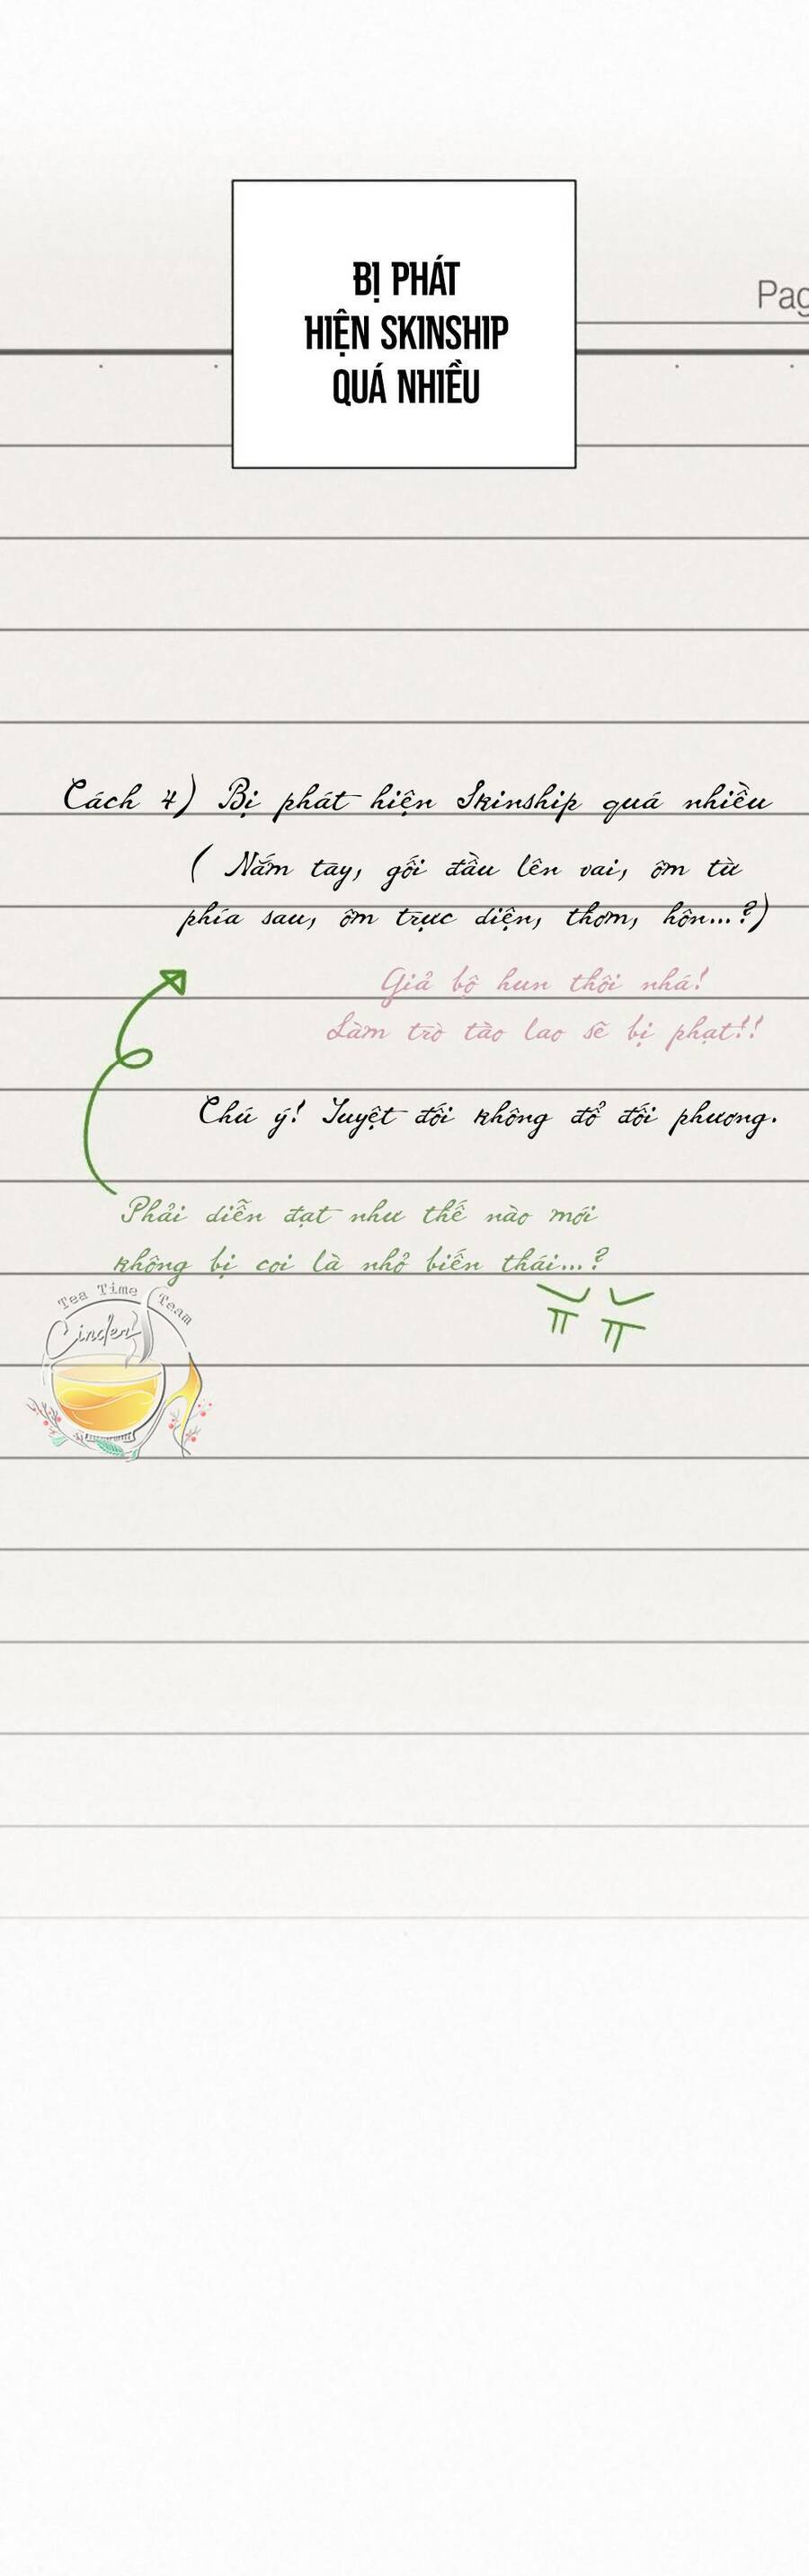 BỊ PHÁT
HIỆN SKINSHIP
QUÁ NHIỀU
Pag
Cách 4) Bị phát hiện Skinship quá nhiều
( Nắm tay, gối đầu lên vai, ôm từ
phía sau, ôm trực diện, thơm, hôn...?)
Giả bộ hun thôi nhá!
Làm trò tào lao sẽ bị phạt!!
Chú ý! Tuyệt đối không đổ đối phương.
Phải diễn đạt như thế nào mới
không bị coi là nhỏ biến thái...?
ㅠ ㅠ
Tea Time Team
Cinder